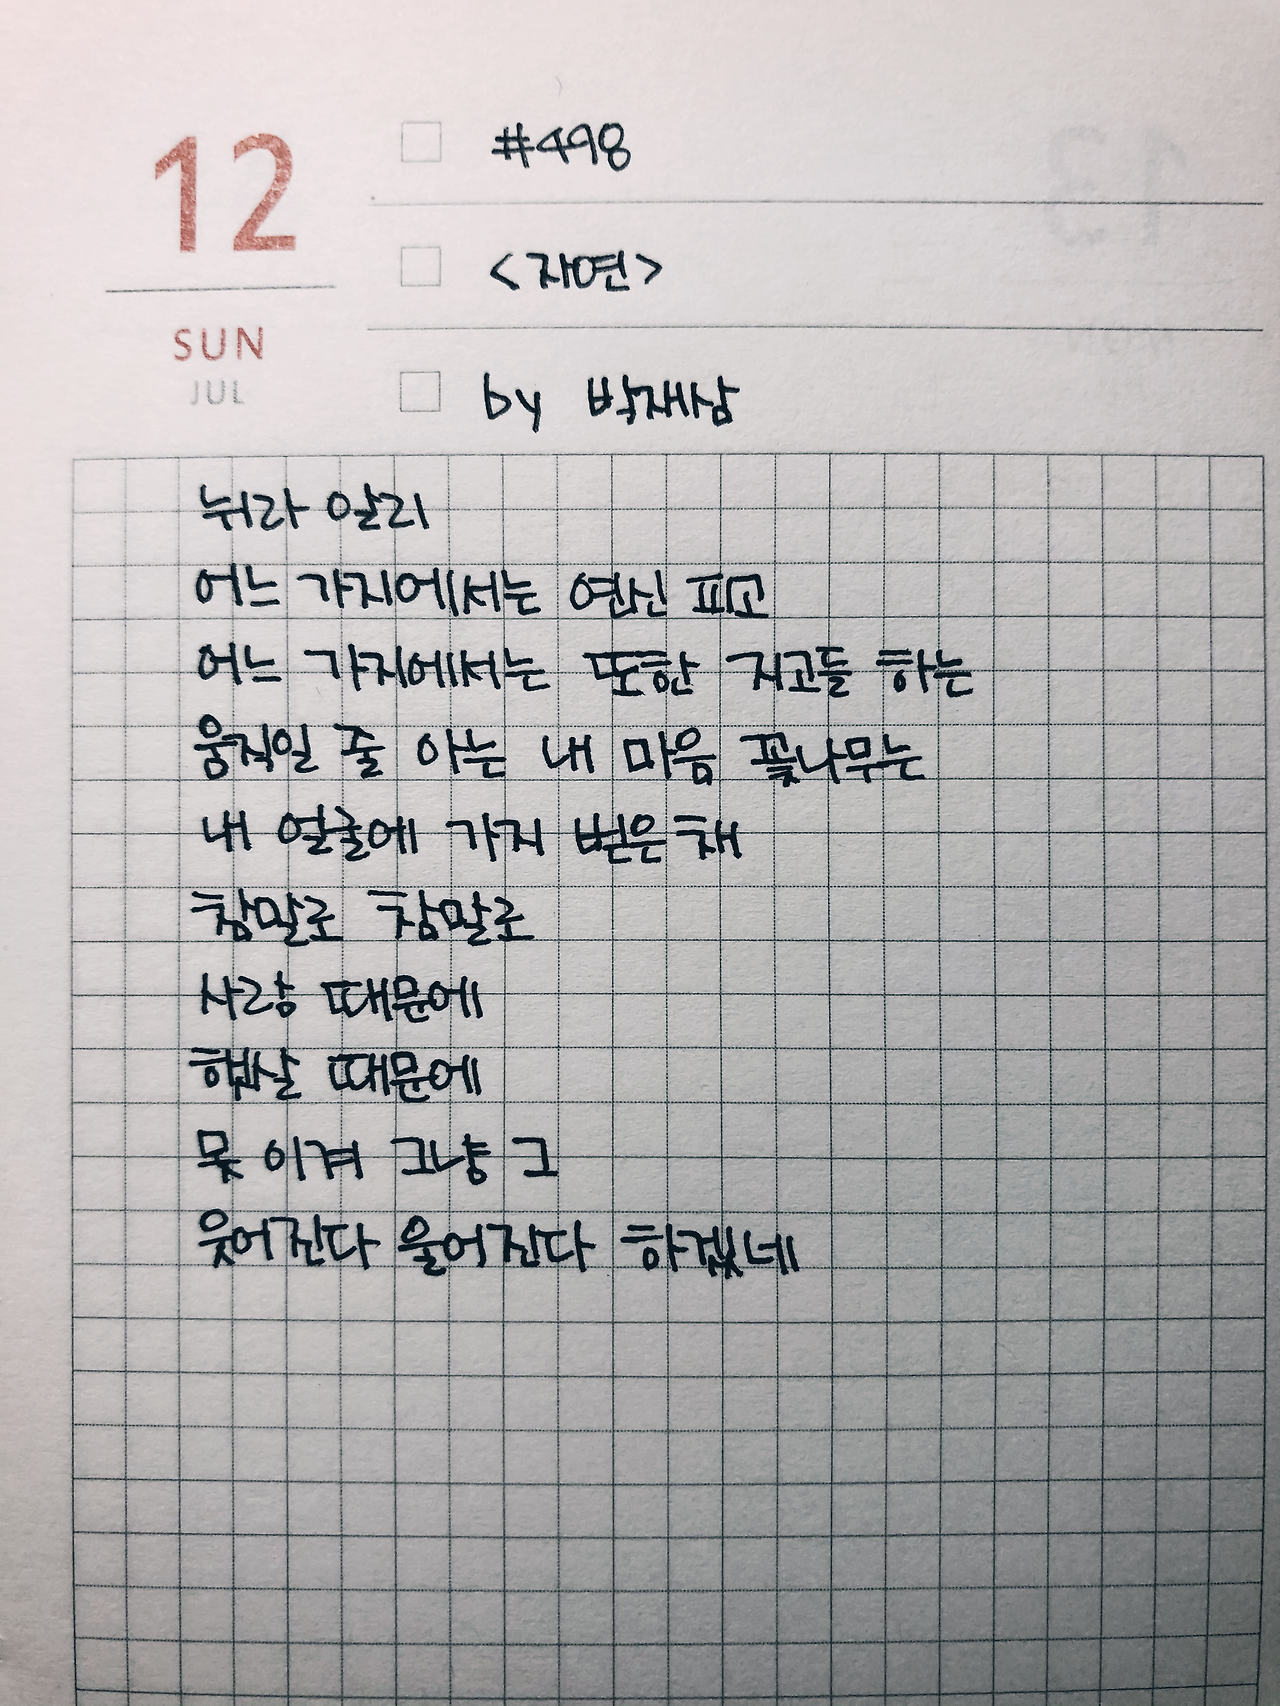 12
SUN
JUL
#498
<자연>
by 박재삼
뉘라 알리
어느 가지에서는 연신 피고
어느 가지에서는 또한 지고들 하는
움직일 줄 아는 내 마음 꽃나무는
내 얼굴에 가지 벋은 채
참말로 참말로
사랑 때문에
햅살 때문에
못 이겨 그냥 그
웃어진다 울어진다 하겠네